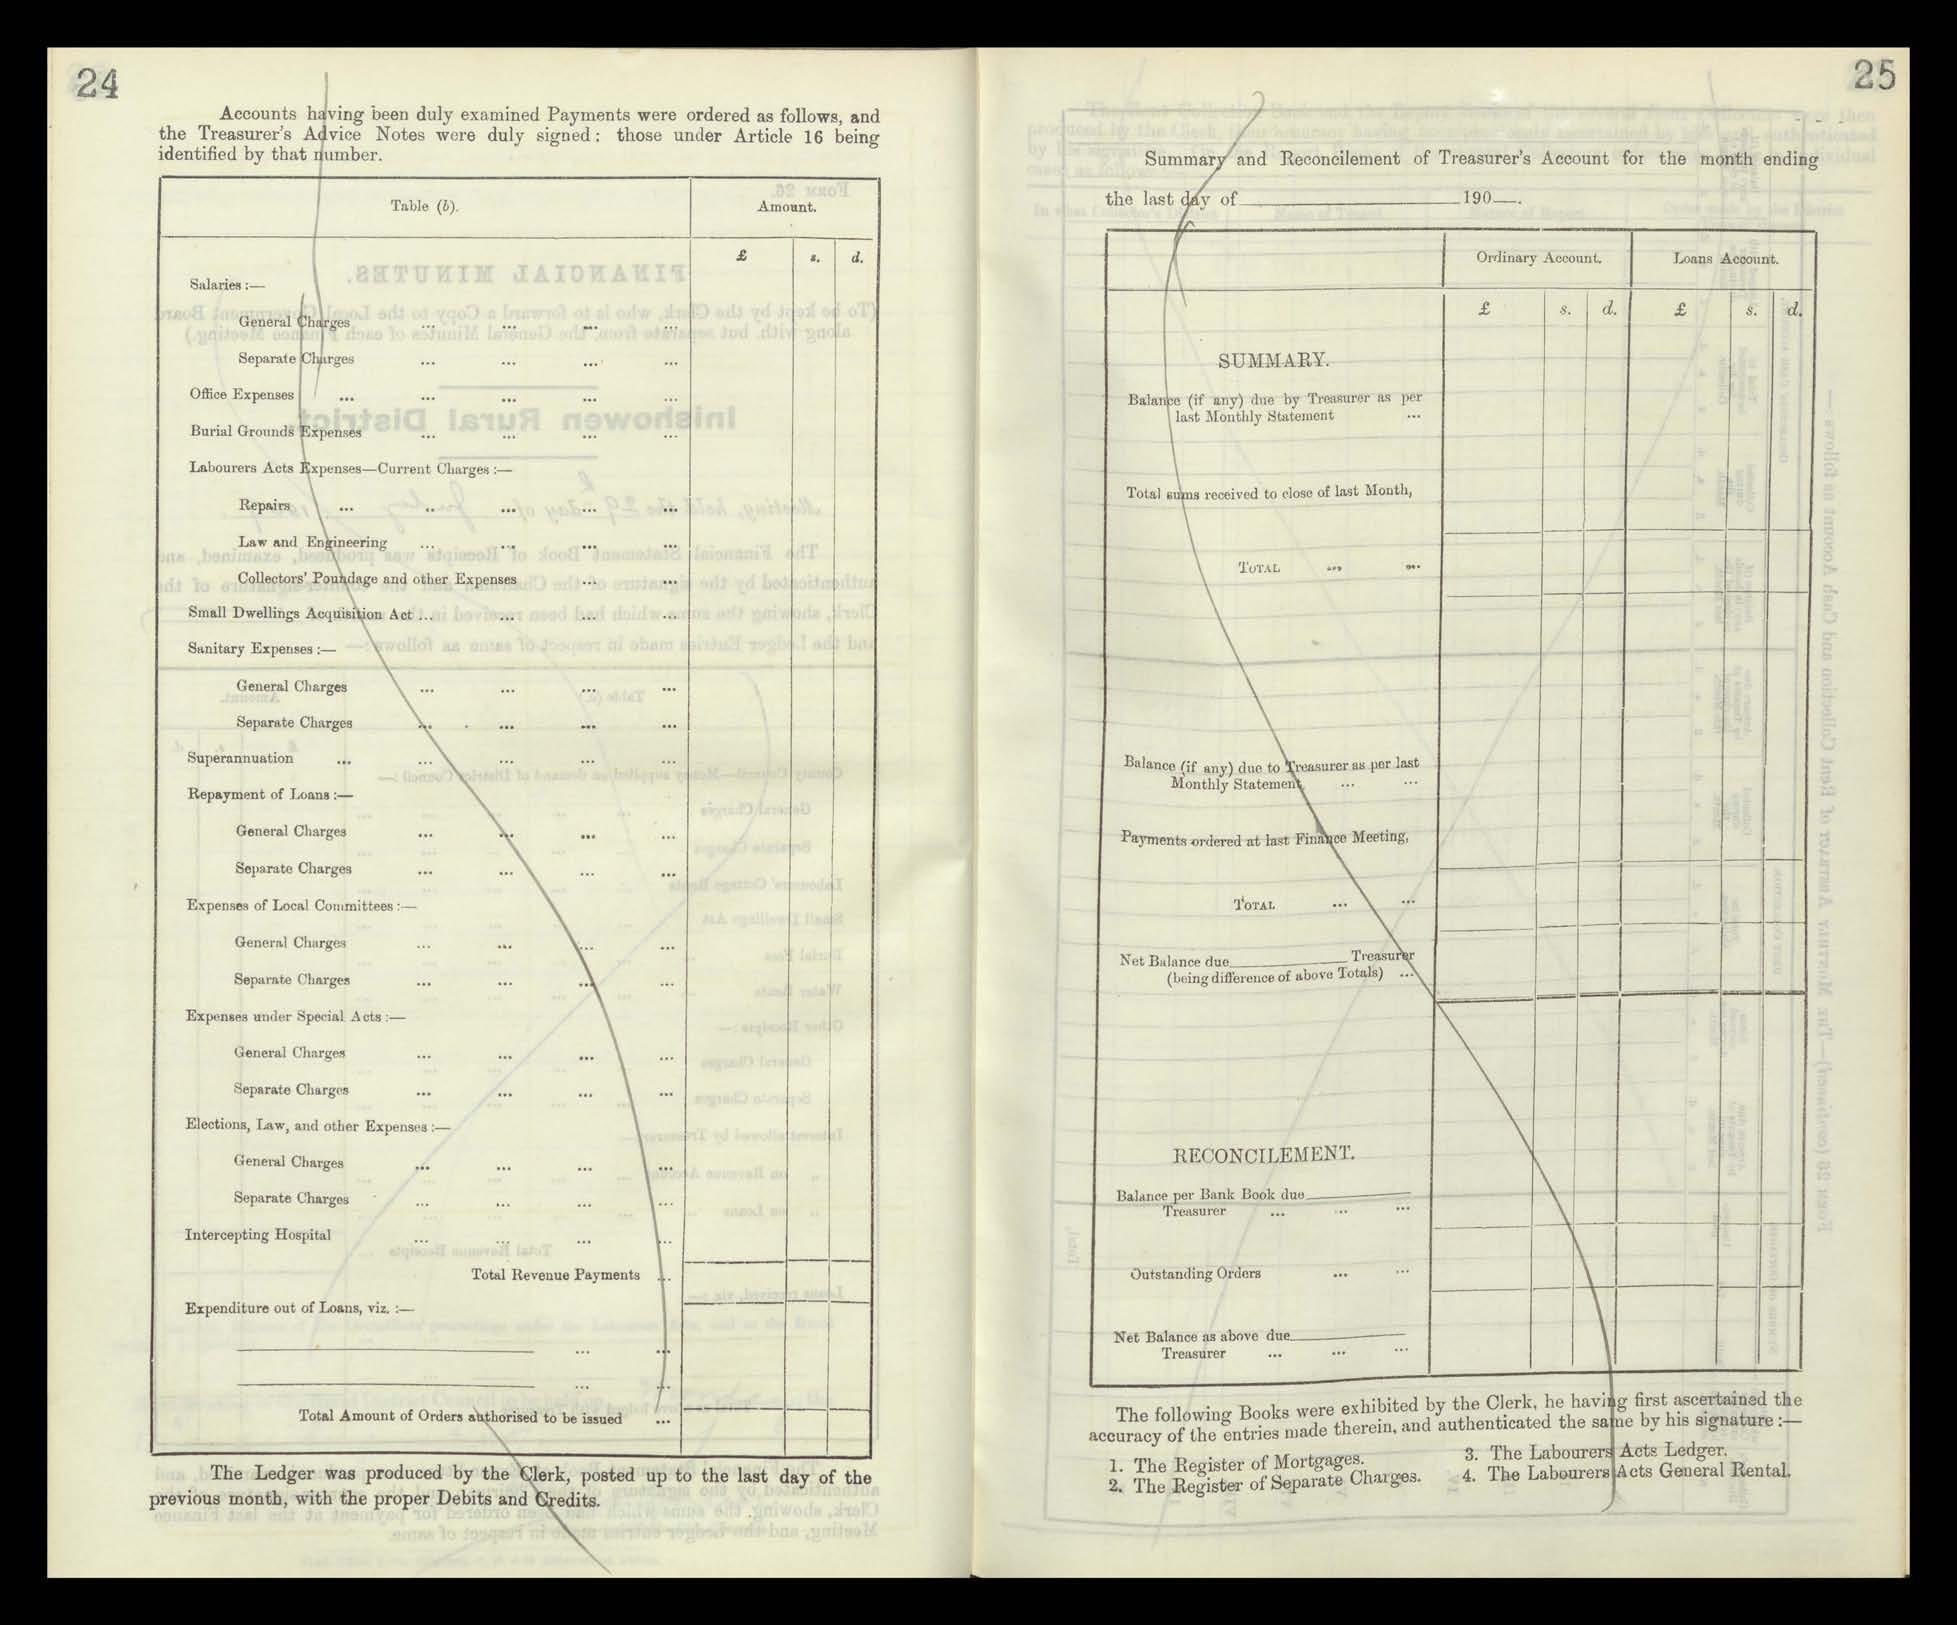 24
Accounts having been duly examined Payments were ordered as follows, and
the Treasurer's Advice Notes were duly signed: those under Article 16 being
identified by that number.
Table (b).
Amount.
£ s. d.
Salaries :—
General Charges ... ... ... ...
Separate Charges ... ... ... ...
Office Expenses ... ... ... ... ...
Burial Grounds Expenses ... ... ... ...
Labourers Acts Expenses—Current Charges :—
Repairs ... ... ... ... ...
Law and Engineering ... ... ... ...
Collectors' Poundage and other Expenses ... ...
Small Dwellings Acquisition Act ... ... ... ...
Sanitary Expenses :—
General Charges ... ... ... ...
Separate Charges ... ... ... ...
Superannuation ... ... ... ... ...
Repayment of Loans :—
General Charges ... ... ... ...
Separate Charges ... ... ... ...
Expenses of Local Committees :—
General Charges ... ... ... ...
Separate Charges ... ... ... ...
Expenses under Special Acts :—
General Charges ... ... ... ...
Separate Charges ... ... ... ...
Elections, Law, and other Expenses :—
General Charges ... ... ... ...
Separate Charges ... ... ... ...
Intercepting Hospital ... ... ... ...
Total Revenue Payments ...
Expenditure out of Loans, viz. :—
... ...
... ...
Total Amount of Orders authorised to be issued ...
The Ledger was produced by the Clerk, posted up to the last day of the
previous month, with the proper Debits and Credits.
25
Summary and Reconcilement of Treasurer's Account for the month ending
the last day of 190 .
Ordinary Account. Loans Account.
£ s. d. £ s. d.
SUMMARY.
Balance (if any) due by Treasurer as per
last Monthly Statement ...
Total sums received to close of last Month,
TOTAL ... ...
Balance (if any) due to Treasurer as per last
Monthly Statement ... ...
Payments ordered at last Finance Meeting,
TOTAL ... ...
Net Balance due Treasurer
(being difference of above Totals) ...
RECONCILEMENT.
Balance per Bank Book due
Treasurer ... ... ...
Outstanding Orders ... ...
Net Balance as above due
Treasurer ... ... ...
The following Books were exhibited by the Clerk, he having first ascertained the
accuracy of the entries made therein, and authenticated the same by his signature :—
1. The Register of Mortgages.
2. The Register of Separate Charges.
3. The Labourers Acts Ledger.
4. The Labourers Acts General Rental.